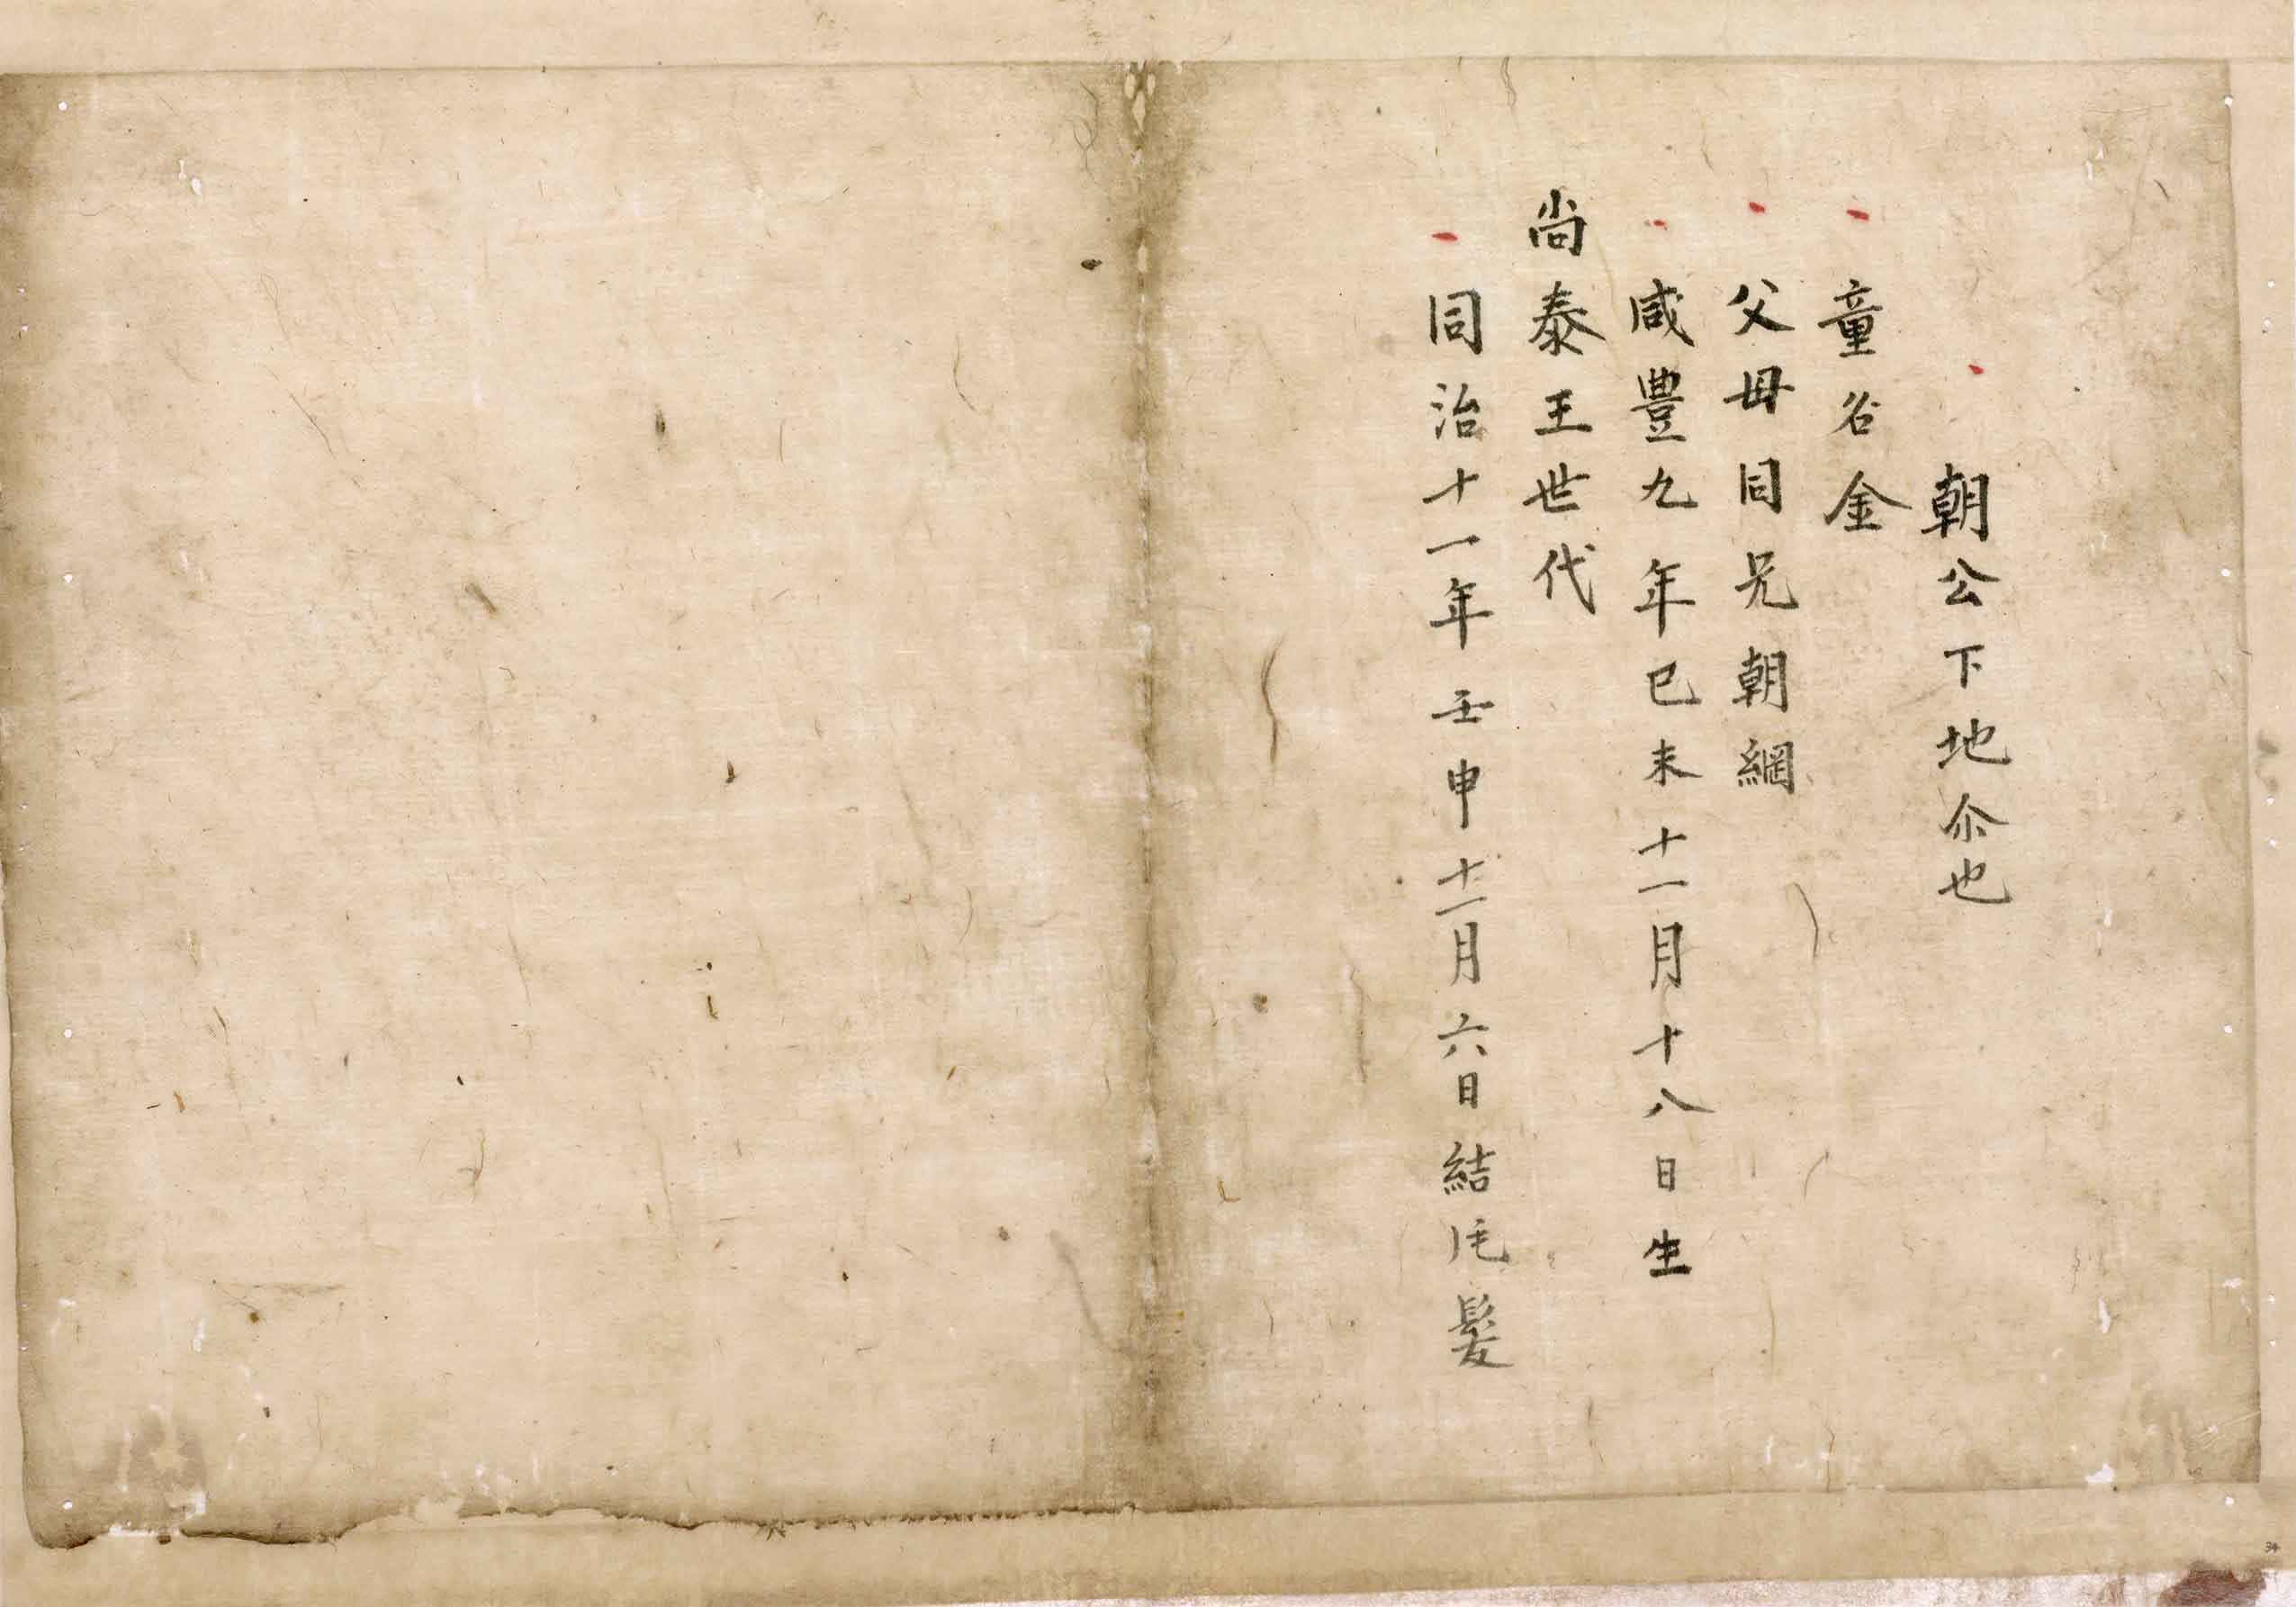 朝公下地尒也
童名金
父母同兄朝綱
咸豐九年己未十一月十八日生
尚泰王世代
同治十一年壬申十二月六日結片髪
34